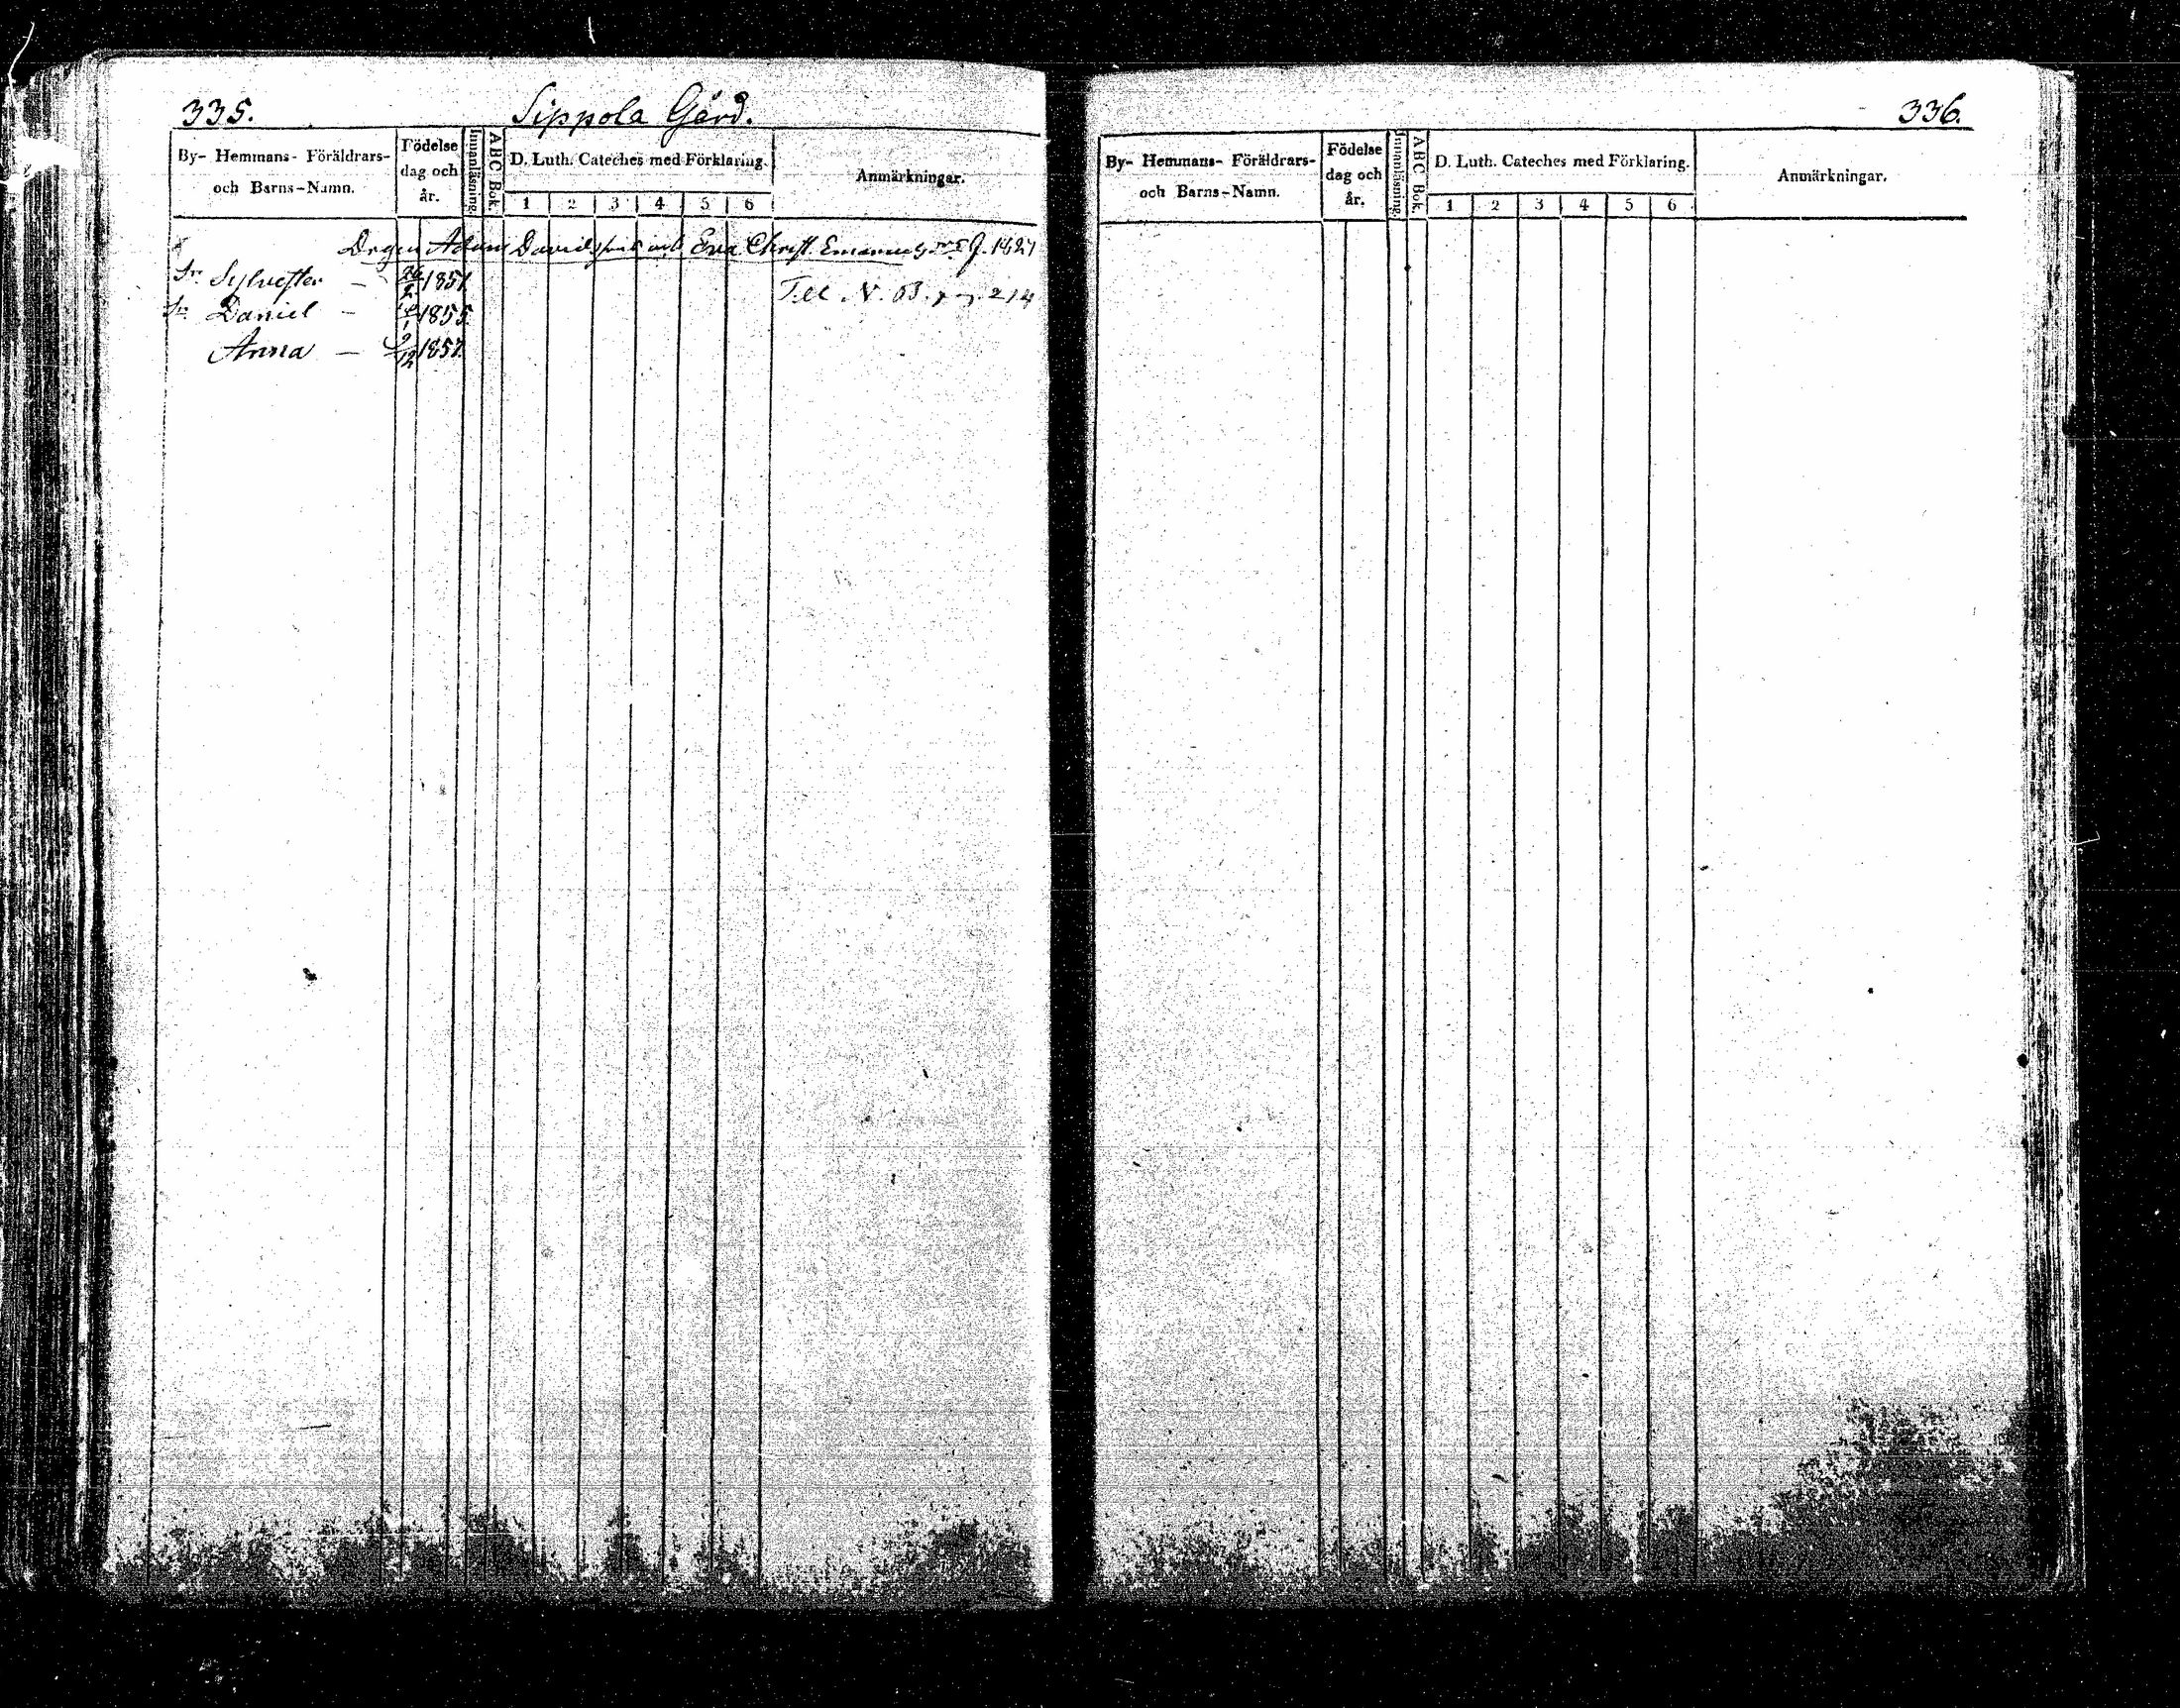 335.
Sippola Gård.
By- Hemmans- Föräldrars- och Barns-Namn.
Födelse dag och år.
Innanläsning.
ABC Bok.
D. Luth. Cateches med Förklaring.
1 2 3 4 5 6
Anmärkningar.
Adam Davidss Eva Christ. Emanuels
Sylvester — 1851
Till N. B. pag. 214
Daniel — 1855
Anna — 9/12 1857
336.
By- Hemmans- Föräldrars- och Barns-Namn.
Födelse dag och år.
Innanläsning.
ABC Bok.
D. Luth. Cateches med Förklaring.
1 2 3 4 5 6
Anmärkningar.